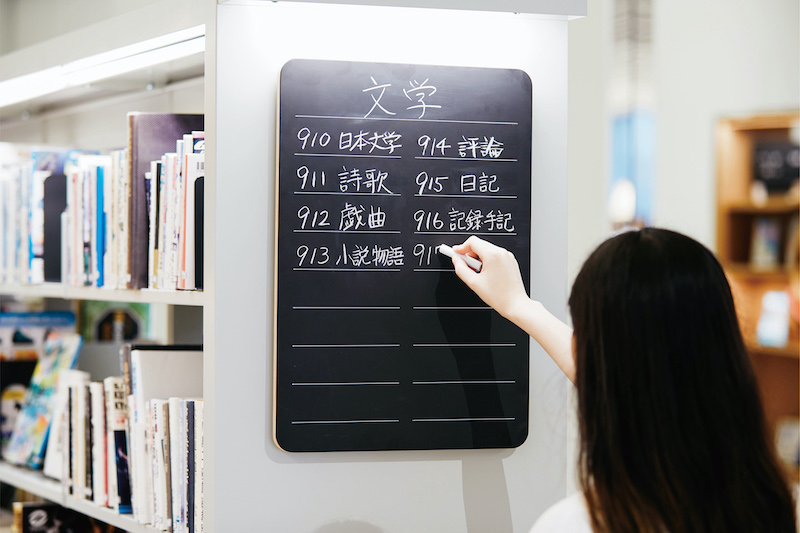 文学
910 日本文学
911 詩歌
912 戯曲
913 小説物語
914 評論
915 日記
916 記録手記
91